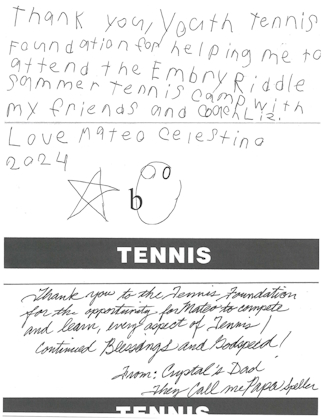 Thank you, Youth Tennis
Foundation for helping me to
attend the Embry Riddle
summer Tennis Camp with
my friends and coach Liz.
Love Mateo Celestino
2024
b
TENNIS
Thank you to the Tennis Foundation
for the opportunity for Mateo to compete
and learn, every aspect of Tennis!
Continued Blessings and Godspeed!
From: Crystal's Dad
They Call me Papa Speller
TENNIS